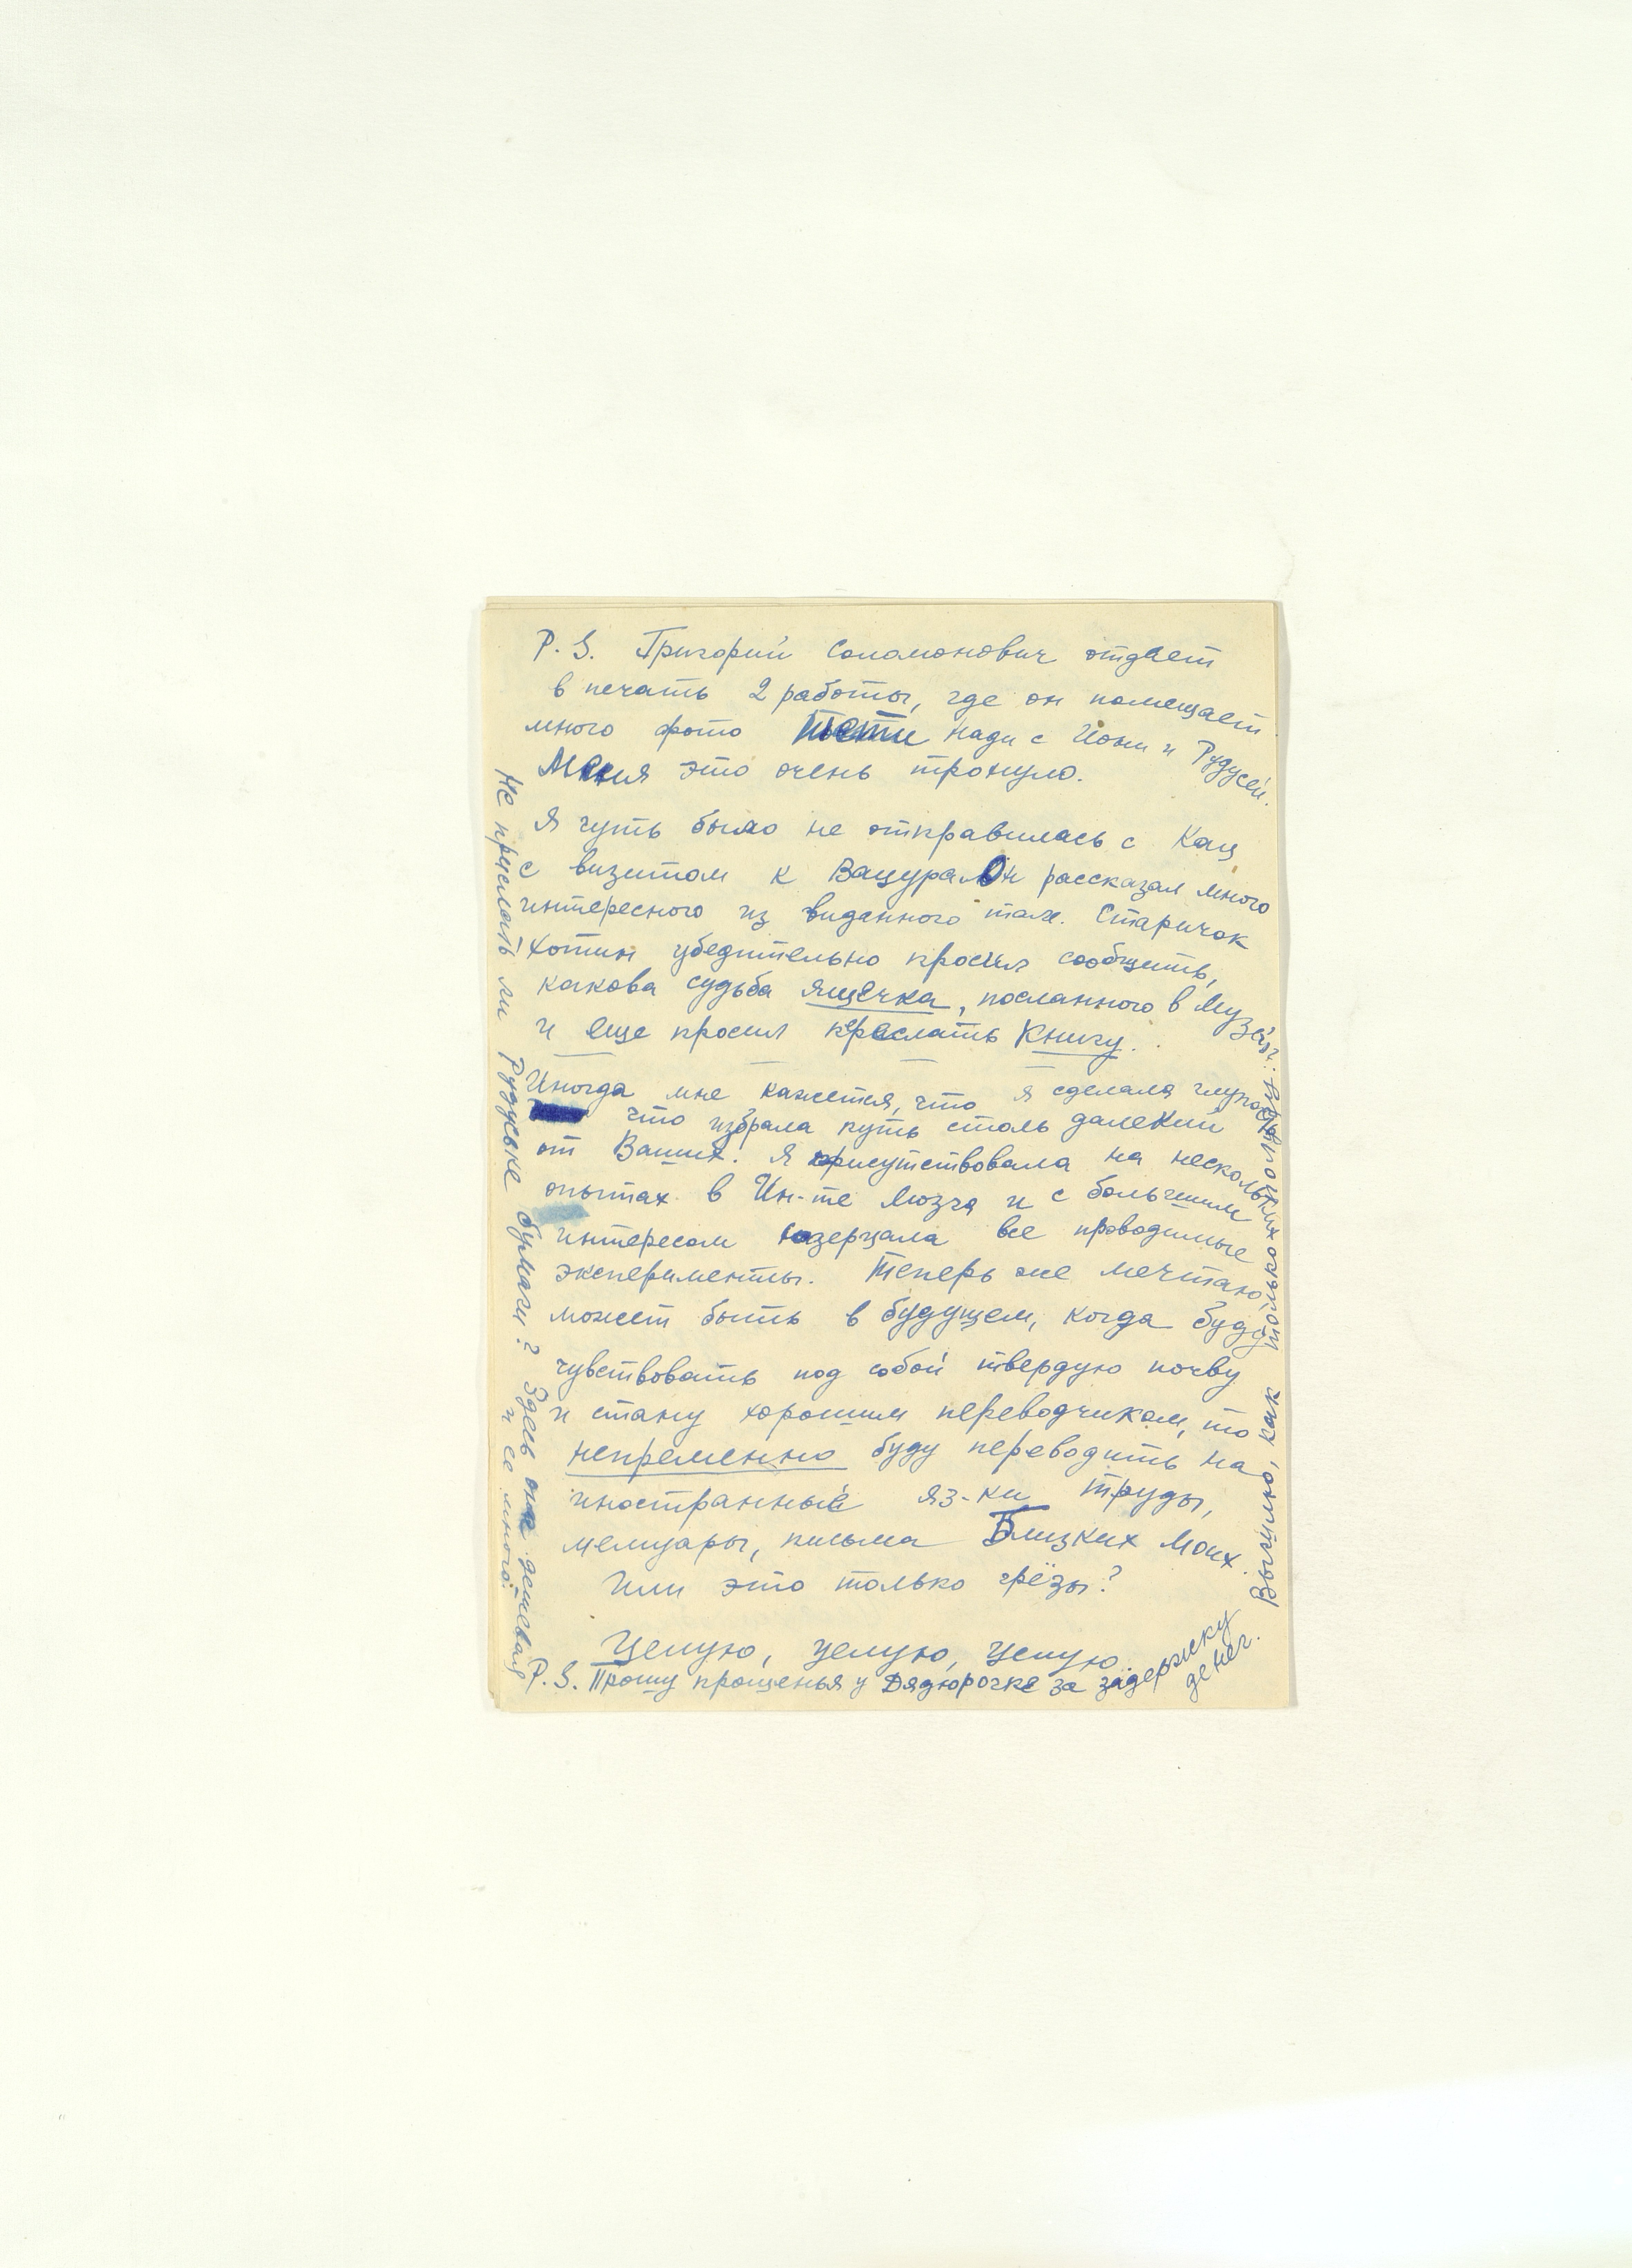 P.S. Григорий Соломонович отдает
в печать 2 работы, где он помещает
много фото Тети Нади с Иони и Рудусей.
Меня это очень тронуло.
Я чуть было не отправилась с Кац
с визитом к Вацура. Он рассказал много
интересного из виденного там. Старичок
Хотин убедительно просил сообщить,
какова судьба ящечка, посланного в Музей?
и еще просил прислать Книгу.
Иногда мне кажется, что я сделала глупость,
что избрала путь столь далекий
от Ваших. Я присутствовала на нескольких
опытах в Ин-те Мозга и с большим
интересом созерцала все проводимые
эксперименты. Теперь же мечтаю,
может быть в будущем, когда буду
чувствовать под собой твердую почву
и стану хорошим переводчиком, то
непременно буду переводить на
иностранные яз-ки труды,
мемуары, письма Близких Моих.
Или это только грёзы?
Целую, целую, целую.
P.S. Прошу прощенья у Дядюрочке за задержку
денег.
Вышлю, как только получу.
Не прислать ли Рудуське бумаги? Здесь она дешевая
и ее много.